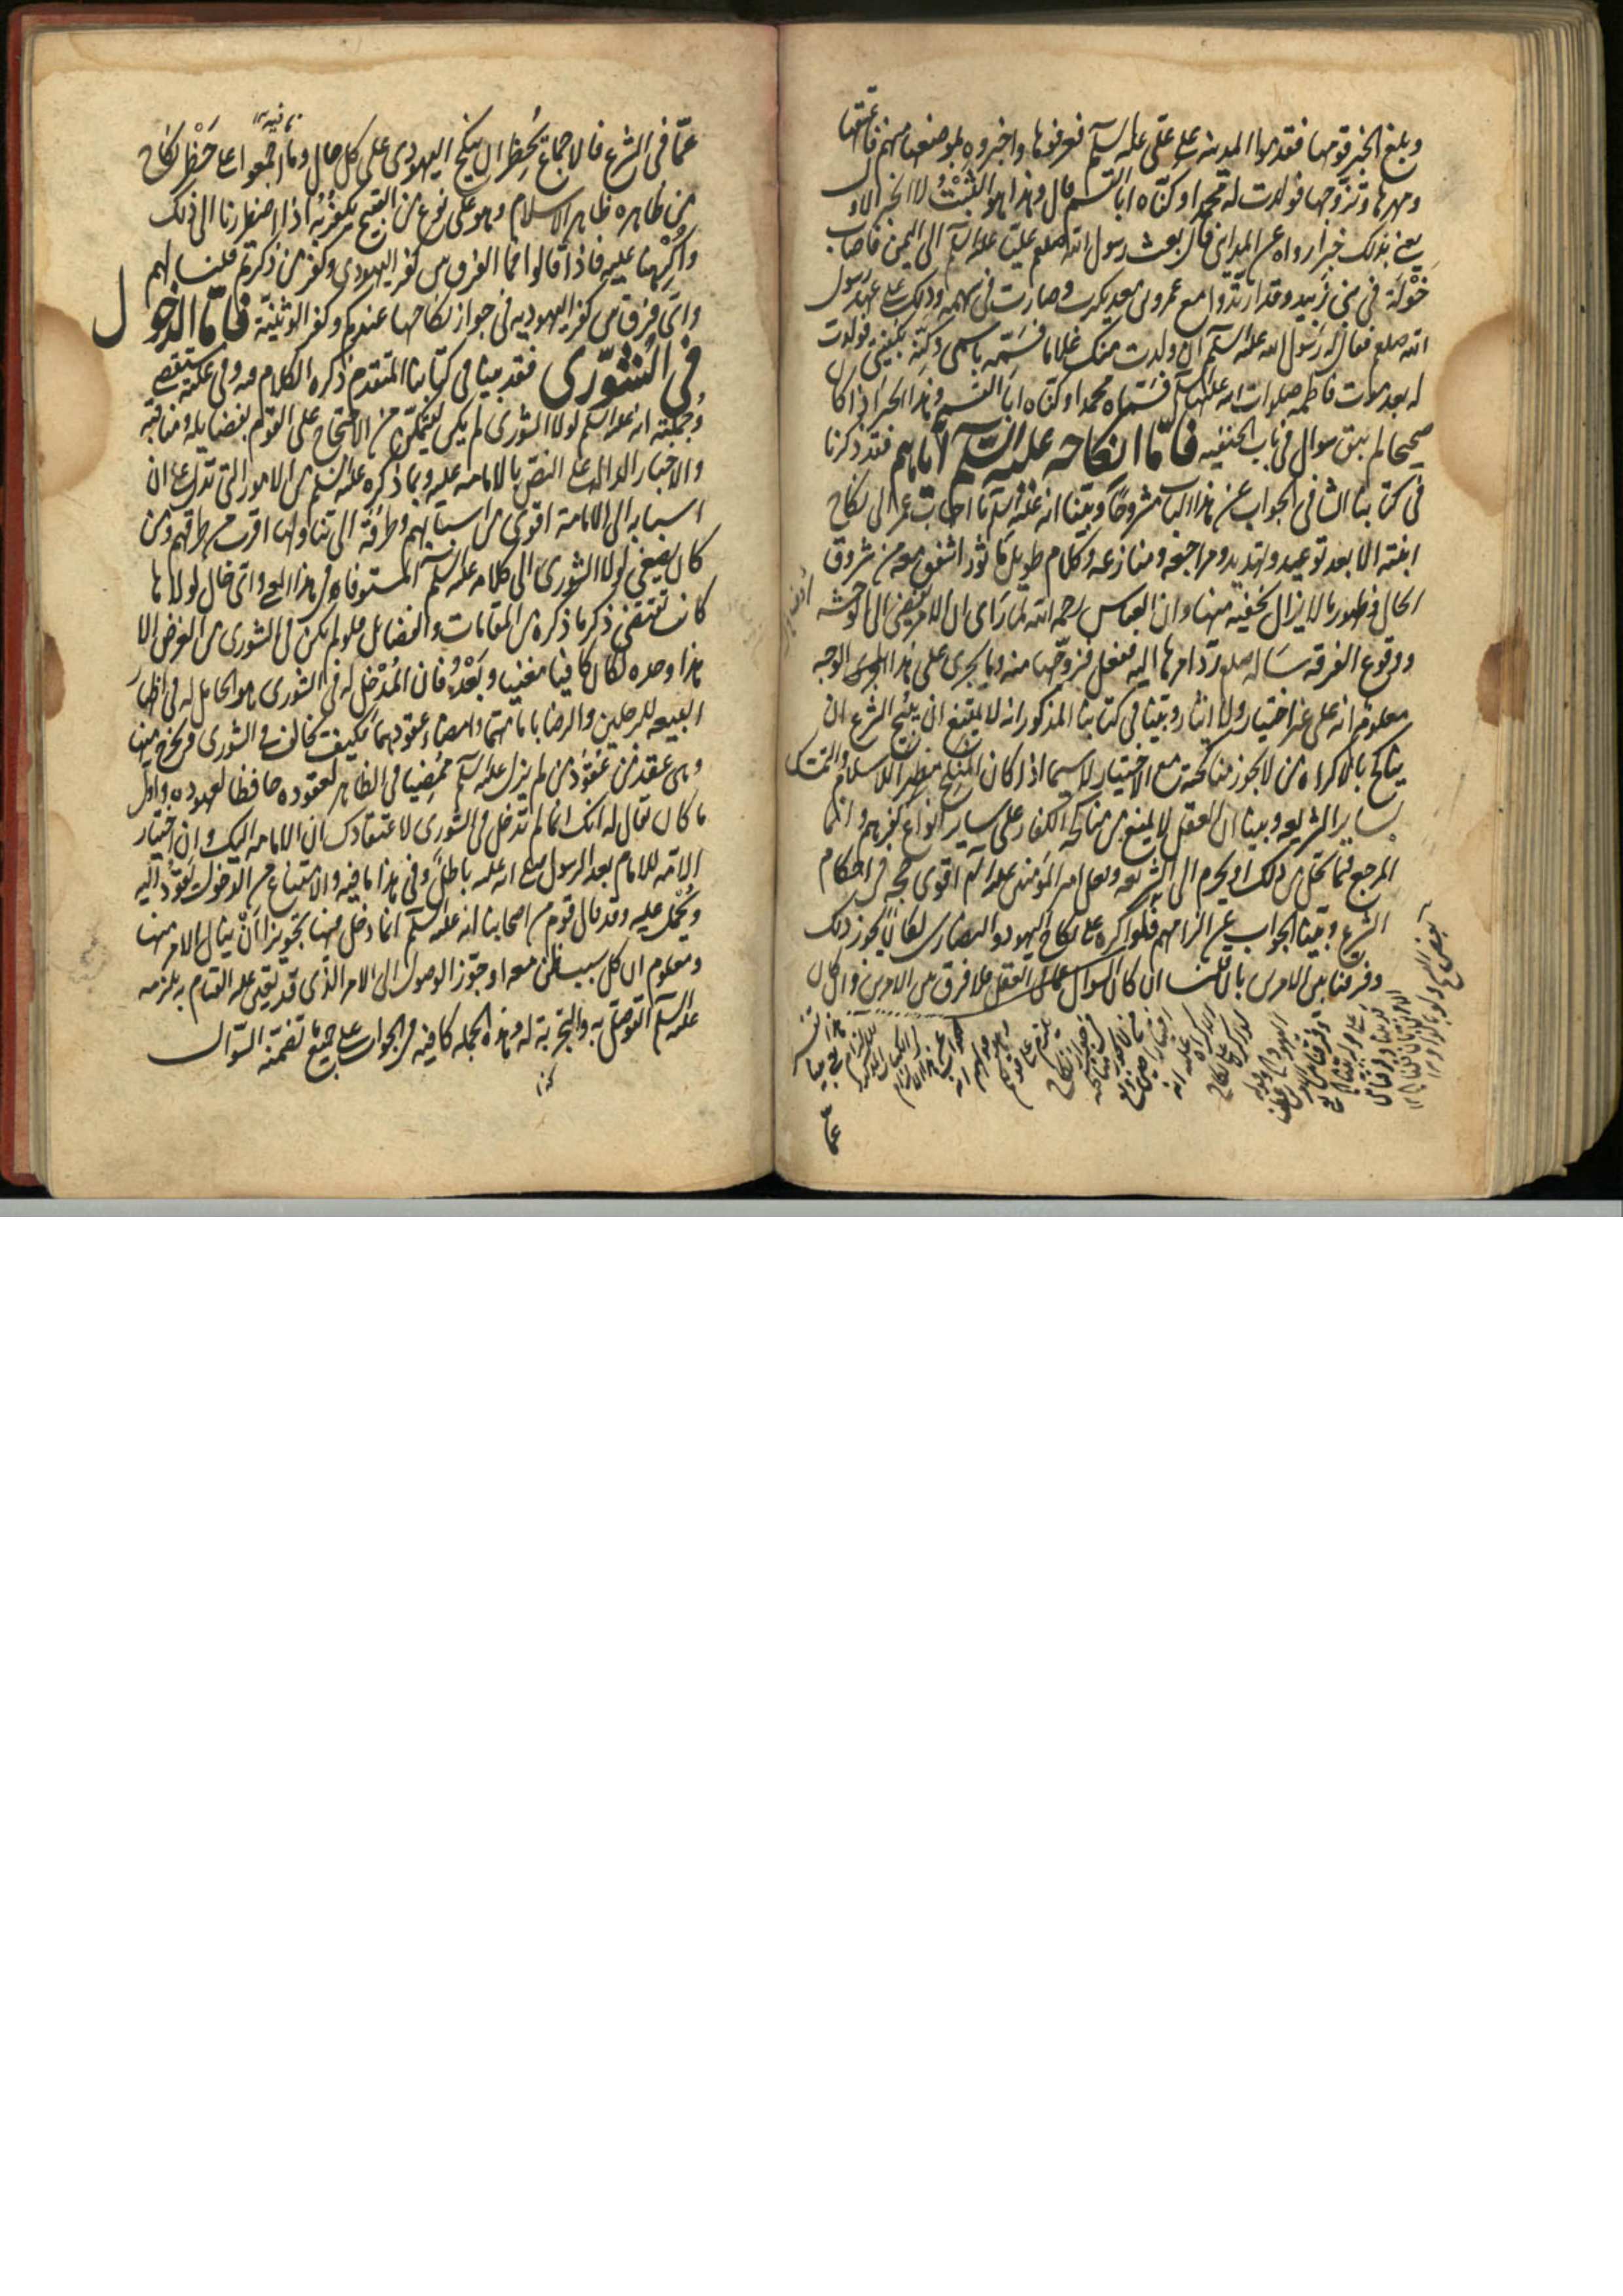 وبلغ الخبر قومها فقدموا المدينة على علي عليه السلم فعرفوها واخبروه بموضعها منهم فاعتقها
ومهرها وتزوجها فولدت له محمدا وكناه ابا القسم قال وهذا هو الثبت لا الخبر الاول
يعني بذلك خبرا رواه عن المدايني قال بعث رسول الله صلعم عليا عليه السلم الى اليمن فاصاب
خولة في بني زبيد وقد ارتدوا مع عمرو بن معديكرب وصارت في سهمه وذلك على عهد رسول
الله صلعم فقال له رسول الله عليه السلم ان ولدت منك غلاما فسمه باسمي وكنه بكنيتي فولدت
له بعد موت فاطمه صلوات الله عليها فسماه محمدا وكناه ابا القسم وهذا الخبر اذا كان
صحيحا لم يبق سوال في باب الحنفيه فاما انكاحه عليه السلم اياهم فقد ذكرنا
في كتابنا الشافي الجواب عن هذا الباب مشروحا وبينا انه عليه السلم ما اجاب عمر الى نكاح
ابنته الا بعد توعيد وتهديد ومراجعه ومنازعه وكلام طويل ماثور اشفق معه من شروق
الحال وظهور ما لا يزال يخفيه منها وان العباس رحمه الله لما راى ان الامر يفضي الى الوحشه
ووقوع الفرقه ساله صلع رد امرها اليه ففعل فزوجها منه وما يجري على هذا الوجه
معلوم انه على غير اختيار ولا ايثار وبينا في كتابنا المذكور انه لا يمتنع ان يبيح الشرع ان
يناكح بالاكراه من لا يجوز مناكحته مع الاختيار لا سيما اذا كان المنكح مظهرا للاسلام والتمسك
بساير الشريعه وبينا ان العقل لا يمنع من مناكحة الكفار على ساير انواع كفرهم وانما
المرجع فيما يحل من ذلك او يحرم الى الشريعه وفعل امير المومنين عليه السلم اقوى حجه في احكام
الشرع وبينا الجواب عن الزامهم فلو اكره على نكاح اليهود والنصارى لكان يجوز ذلك
وفرقنا بين الامرين بان قلنا ان كان السوال عما في العقل فلا فرق بين الامرين وان كان
عما
عما في الشرع فالاجماع يحظر ان ينكح اليهودي على كل حال وما اجمعوا على حظر نكاح
من ظاهره ظاهر الاسلام وهو على نوع من القبيح يكفر به اذا اضطررنا الى ذلك
واكرهنا عليه فاذا قالوا فما الفرق بين كفر اليهودي وكفر من ذكرتم قلنا لهم
واي فرق بين كفر اليهودية في جواز نكاحها عندكم وكفر الوثنية فاما الدخول
في الشورى فقد بينا في كتابنا المتقدم ذكره الكلام فيه وفي علته مستقصى
وجملته انه عليه السلم لولا الشورى لم يكن ليتمكن من الاحتجاج على القوم بفضايله ومناقبه
والاخبار الدالة على النص بالامامه عليه وبما ذكره عليه السلم من الامور التي تدل على ان
اسبابه الى الامامة اقوى من اسبابهم وطرقه الى تناولها اقرب من طرقهم ومن
كان يصغي لولا الشورى الى كلامه عليه السلم المستوفاه في هذا المعنى واي حال لولاها
كانت تقتضي ذكر ما ذكره من المقامات والفضائل فلو لم يكن في الشورى من الغرض الا
هذا وحده لكان كافيا مغنيا وبعد فان المدخل له في الشورى هو الحامل له في اظهار
البيعه للرجلين والرضا بامامتهما وامضاء عقودهما فكيف يخالف في الشورى ويخرج منها
وهي عقد من عقود من لم يزل عليه السلم ممضيا في الظاهر لعقوده حافظا لعهوده واول
ما كان يقال له انك انما لم تدخل في الشورى لاعتقادك ان الامامه اليك وان اختيار
الامه للامام بعد الرسول صلى الله عليه باطل وفي هذا ما فيه والامتناع من الدخول يعود اليه
ويحمل عليه وقد قال قوم من اصحابنا انه عليه السلم انما دخل فيها تجويزا ان ينال الامر منها
ومعلوم ان كل سبب ظن معه او جوز الوصول الى الامر الذي قد تعين عليه القيام به يلزمه
عليه السلم التوصل به والتجربة له وهذه الجمله كافيه في الجواب على جميع ما تضمنه السوال